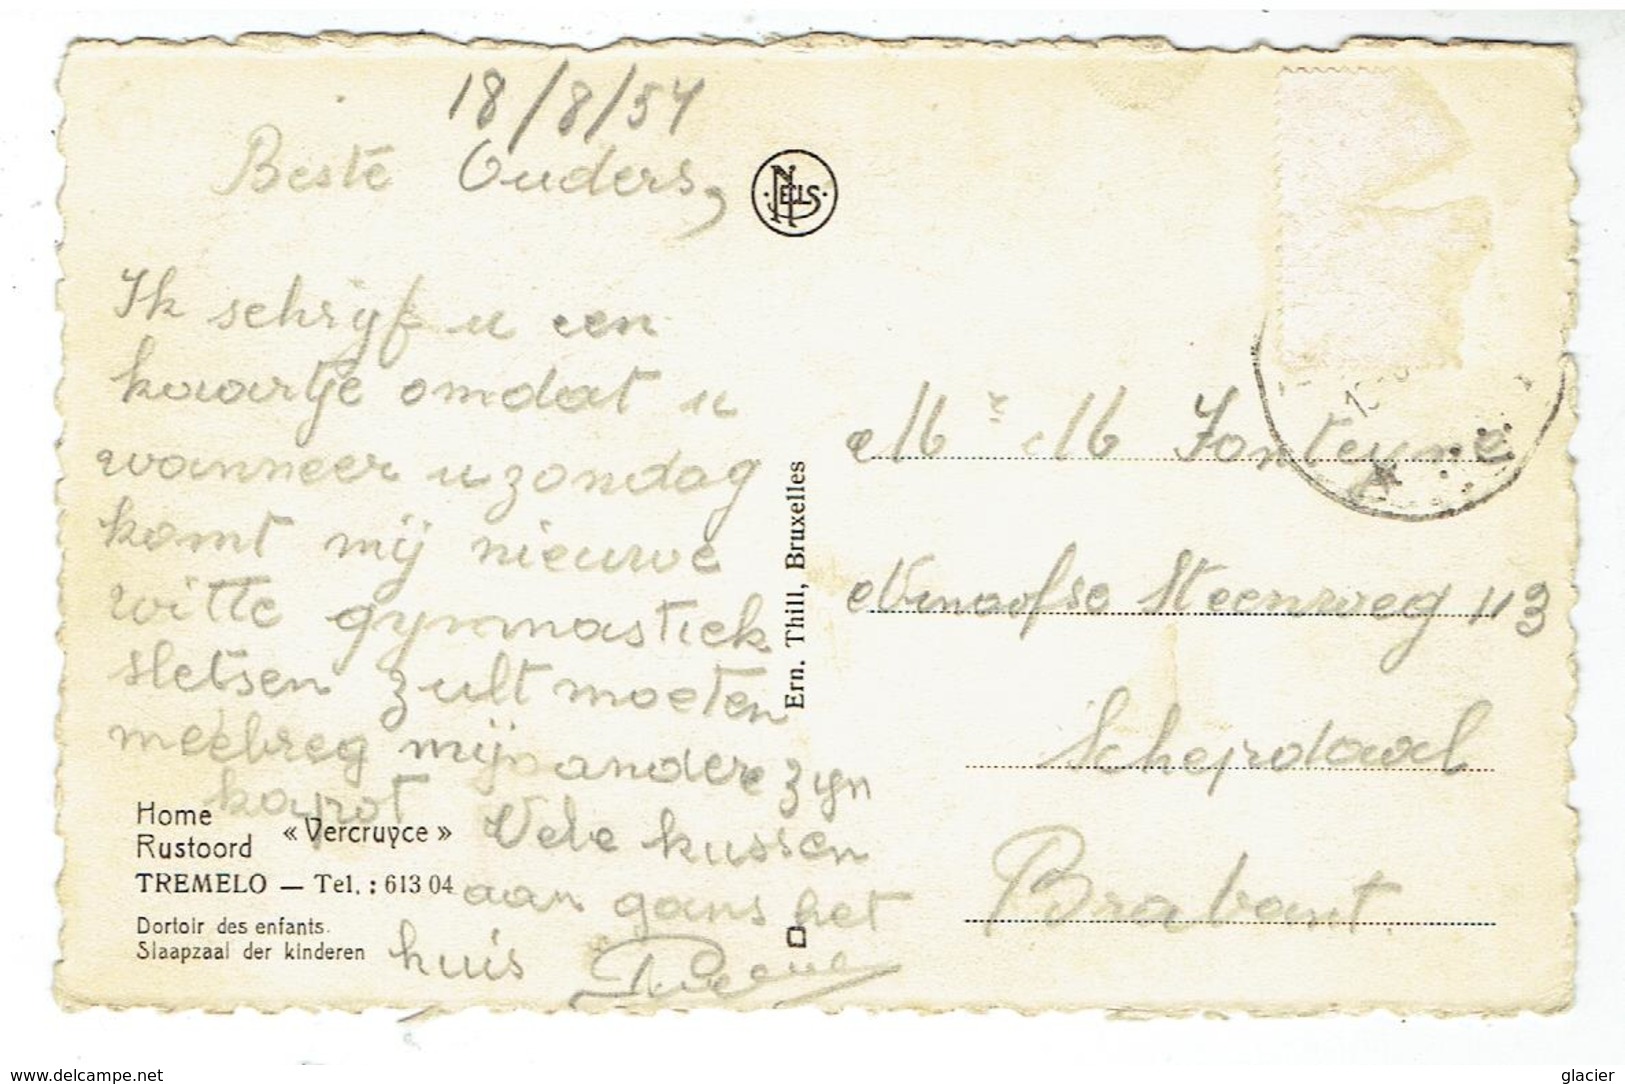 18/8/54
Beste Ouders,
Ik schrijf u een
kaartje omdat u
wanneer u zondag
komt mij nieuwe
witte gymnastiek
sletsen zult moeten
meebreg mijn andere zyn
kapot Vele kussen
aan gans het
huis
NELS
Ern. Thill, Bruxelles
Home
Rustoord « Vercruyce »
TREMELO — Tel. : 613 04
Dortoir des enfants.
Slaapzaal der kinderen
Mr M Fonteyne
Ninoofse Steenweg 113
Schepdaal
Brabant.
www.delcampe.net
glacier